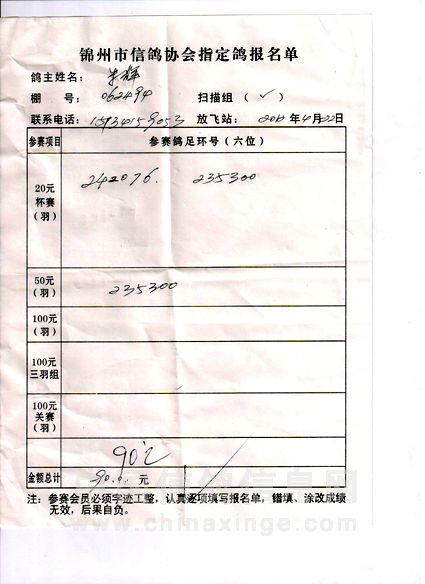 锦州市信鸽协会指定鸽报名单
鸽主姓名：
棚 号：062494 扫描组（✓）
联系电话： 放飞站： 年4月22日
参赛项目 参赛鸽足环号（六位）
20元杯赛（羽） 242076. 235300
50元（羽） 235300
100元（羽）
100元三羽组
100元关赛（羽）
90元
金额总计 90.0. 元
注：参赛会员必须字迹工整，认真逐项填写报名单，错填、涂改成绩
无效，后果自负。
www.chinaxinge.com